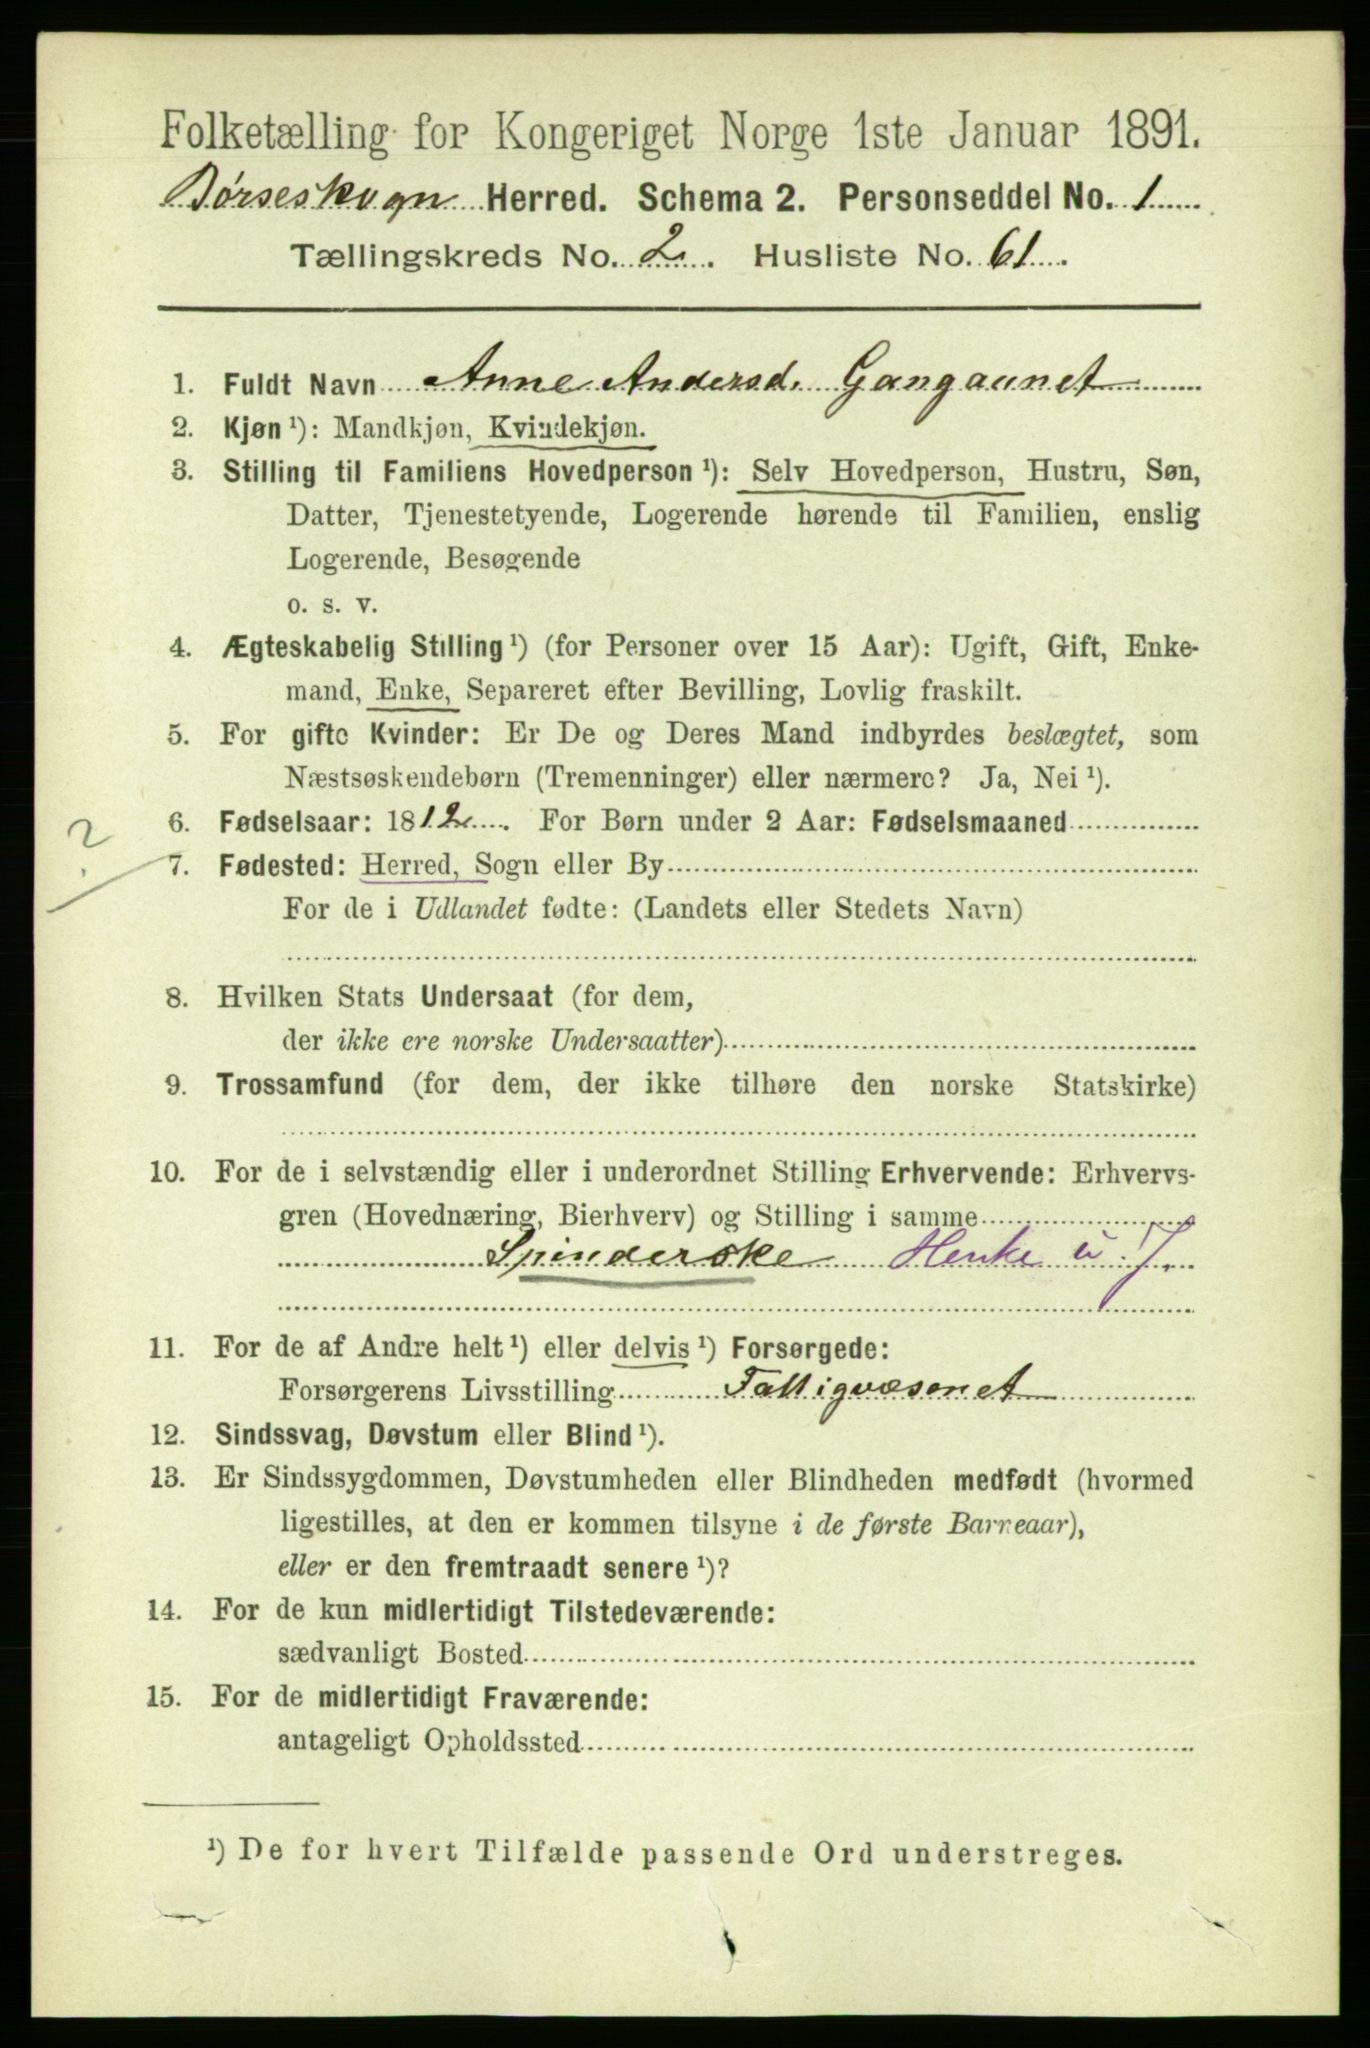 Folketælling for Kongeriget Norge 1ste Januar 1891.
Børseskogn Herred. Schema 2. Personseddel No. 1
Tællingskreds No. 2. Husliste No. 61.
1. Fuldt Navn Anne Andersd. Gangaunet
2. Kjøn ¹): Mandkjøn, Kvindekjøn.
3. Stilling til Familiens Hovedperson ¹): Selv Hovedperson, Hustru, Søn,
Datter, Tjenestetyende, Logerende hørende til Familien, enslig
Logerende, Besøgende
o. s. v.
4. Ægteskabelig Stilling ¹) (for Personer over 15 Aar): Ugift, Gift, Enke-
mand, Enke, Separeret efter Bevilling, Lovlig fraskilt.
5. For gifte Kvinder: Er De og Deres Mand indbyrdes beslægtet, som
Næstsøskendebørn (Tremenninger) eller nærmere? Ja, Nei ¹).
6. Fødselsaar: 1812. For Børn under 2 Aar: Fødselsmaaned
?
7. Fødested: Herred, Sogn eller By
For de i Udlandet fødte: (Landets eller Stedets Navn)
8. Hvilken Stats Undersaat (for dem,
der ikke ere norske Undersaatter)
9. Trossamfund (for dem, der ikke tilhøre den norske Statskirke)
10. For de i selvstændig eller i underordnet Stilling Erhvervende: Erhvervs-
gren (Hovednæring, Bierhverv) og Stilling i samme
Spinderske
11. For de af Andre helt ¹) eller delvis ¹) Forsørgede:
Forsørgerens Livsstilling Fattigvæsenet
12. Sindssvag, Døvstum eller Blind ¹).
13. Er Sindssygdommen, Døvstumheden eller Blindheden medfødt (hvormed
ligestilles, at den er kommen tilsyne i de første Barneaar),
eller er den fremtraadt senere ¹)?
14. For de kun midlertidigt Tilstedeværende:
sædvanligt Bosted
15. For de midlertidigt Fraværende:
antageligt Opholdssted
¹) De for hvert Tilfælde passende Ord understreges.